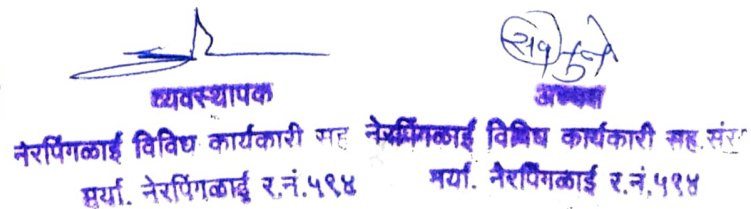 व्यवस्थापक
नेरपिंगळाई विविध कार्यकारी सह
मर्या. नेरपिंगळाई र.नं.५९४
अध्यक्ष
नेरपिंगळाई विविध कार्यकारी सह. संस
मर्या. नेरपिंगळाई र.नं.५९४